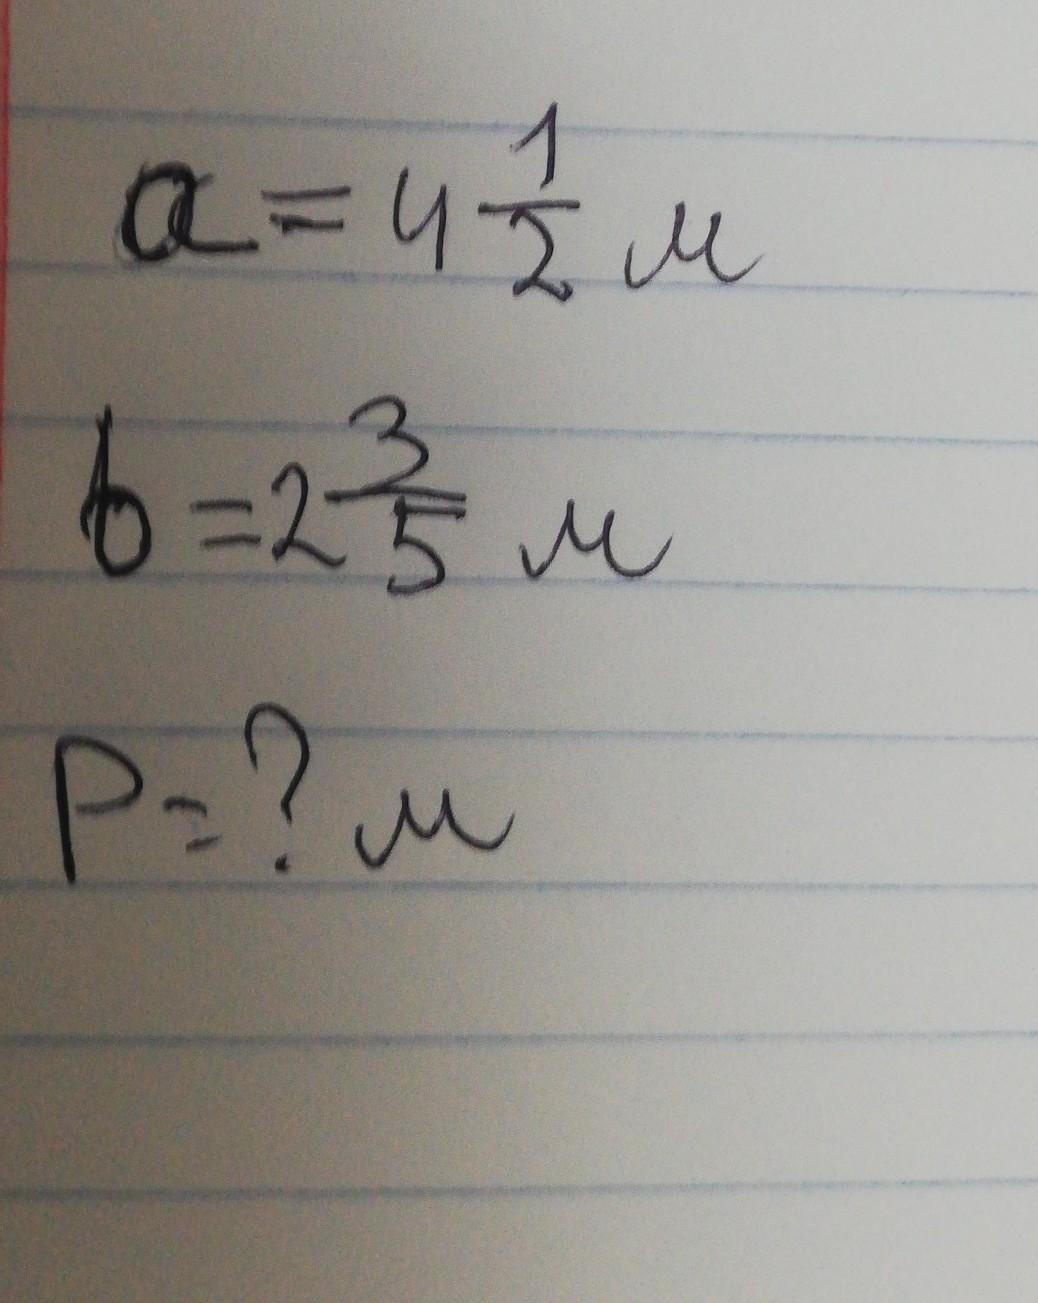 a = 4 1/2 м
b = 2 3/5 м
P = ? м